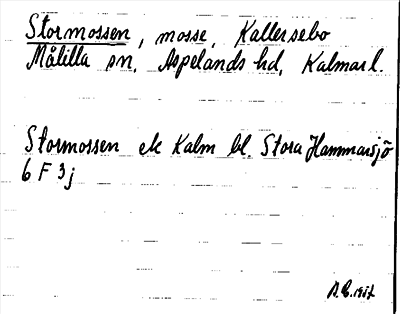 Stormossen, mosse, Kallersebo
Målilla sn, Aspelands hd, Kalmar l.
Stormossen ek Kalm bl. Stora Hammarsjö
6 F 3j